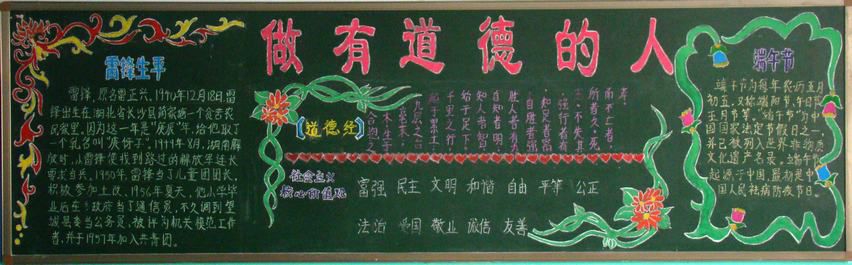 做有道德的人
雷锋生平
雷锋，原名雷正兴，1940年12月18日，雷
锋出生在湖北省长沙县简家塘一个贫苦农
民家里，因为这一年是"庚辰"年，给他取了
一个乳名叫"庚伢子"。1949年8月，湖南解
放时，小雷锋便找到路过的解放军连长
要求当兵，1950年，雷锋当了儿童团团长，
积极参加土改，1956年夏天，他小学毕
业后在乡政府当了通信员，不久调到望
城县委当公务员，被评为机关模范工作
者，并于1957年加入共青团。
【道德经】
合抱之
木，生于
毫末；
九层之台，
起于累土；
千里之行，
始于足下。
知人者智，
自知者明。
胜人者有力，
自胜者强。
知足者富，
强行者有
志。不失其
所者久，死
而不亡者
寿。
社会主义
核心价值观
富强 民主 文明 和谐 自由 平等 公正
法治 爱国 敬业 诚信 友善
端午节
端午节为每年农历五月
初五，又称端阳节，午日节
五月节等。"端午节"为中
国国家法定节假日之一，
并已被列入世界非物质
文化遗产名录，端午节
起源于中国，最初是中
国人民祛病防疫节日。